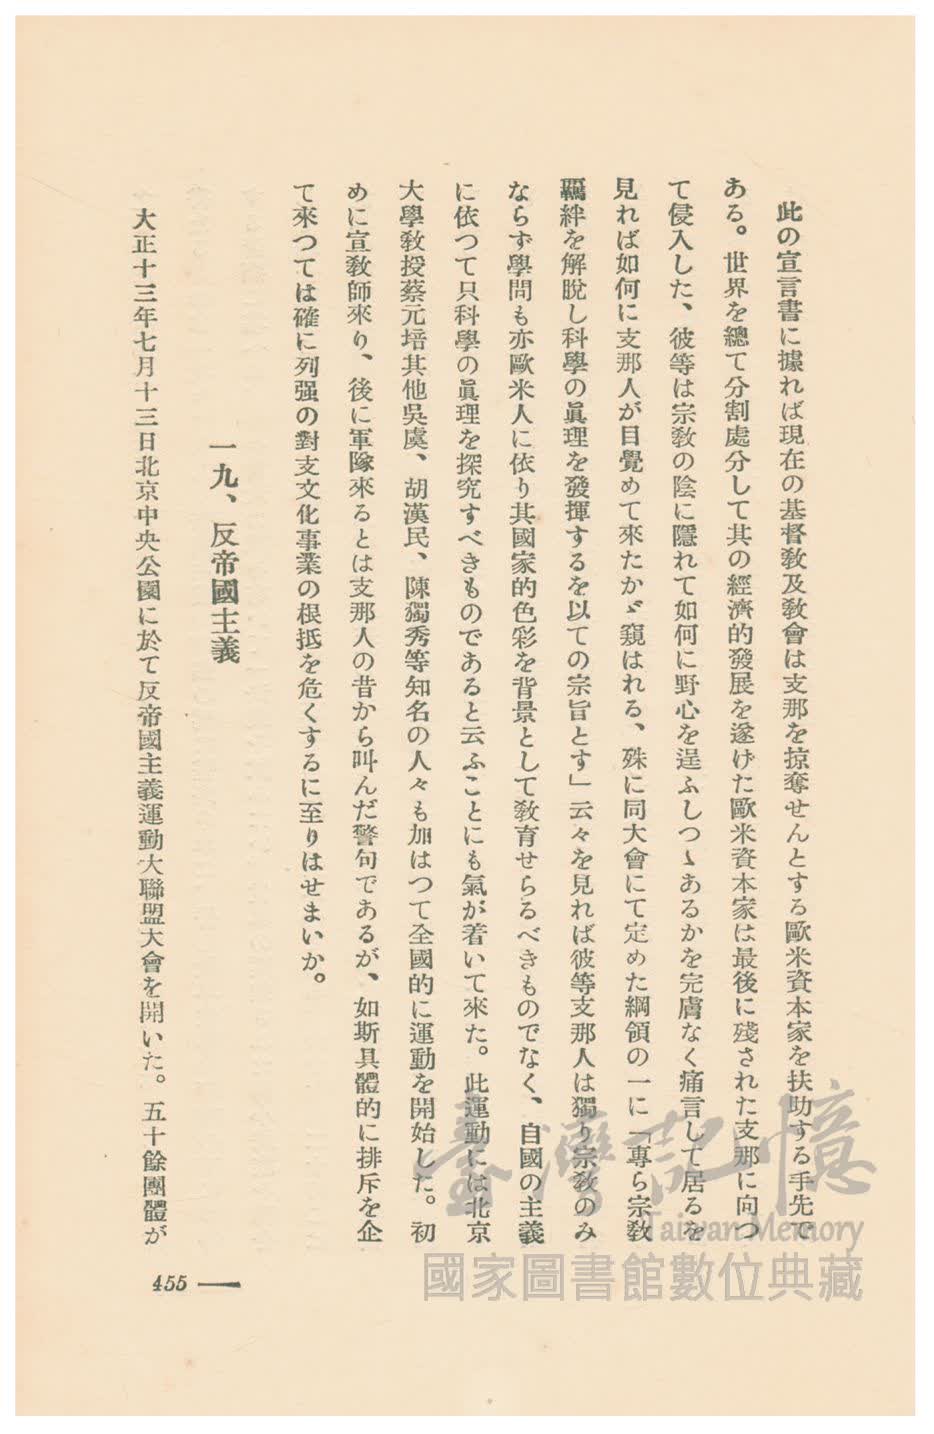 此の宣言書に據れば現在の基督敎及敎會は支那を掠奪せんとする歐米資本家を扶助する手先で
ある。世界を總て分割處分して其の經濟的發展を遂げた歐米資本家は最後に殘された支那に向つ
て侵入した、彼等は宗敎の陰に隱れて如何に野心を逞ふしつゝあるかを完膚なく痛言して居るを
見れば如何に支那人が目覺めて來たかゞ窺はれる、殊に同大會にて定めた綱領の一に「專ら宗敎
羈絆を解脫し科學の眞理を發揮するを以ての宗旨とす」云々を見れば彼等支那人は獨り宗敎のみ
ならず學問も亦歐米人に依り其國家的色彩を背景として敎育せらるべきものでなく、自國の主義
に依つて只科學の眞理を探究すべきものであると云ふことにも氣が着いて來た。此運動には北京
大學敎授蔡元培其他吳虞、胡漢民、陳獨秀等知名の人々も加はつて全國的に運動を開始した。初
めに宣敎師來り、後に軍隊來るとは支那人の昔から叫んだ警句であるが、如斯具體的に排斥を企
て來つては確に列强の對支文化事業の根抵を危くするに至りはせまいか。
一九、反帝國主義
大正十三年七月十三日北京中央公園に於て反帝國主義運動大聯盟大會を開いた。五十餘團體が
455
臺灣記憶
Taiwan Memory
國家圖書館數位典藏